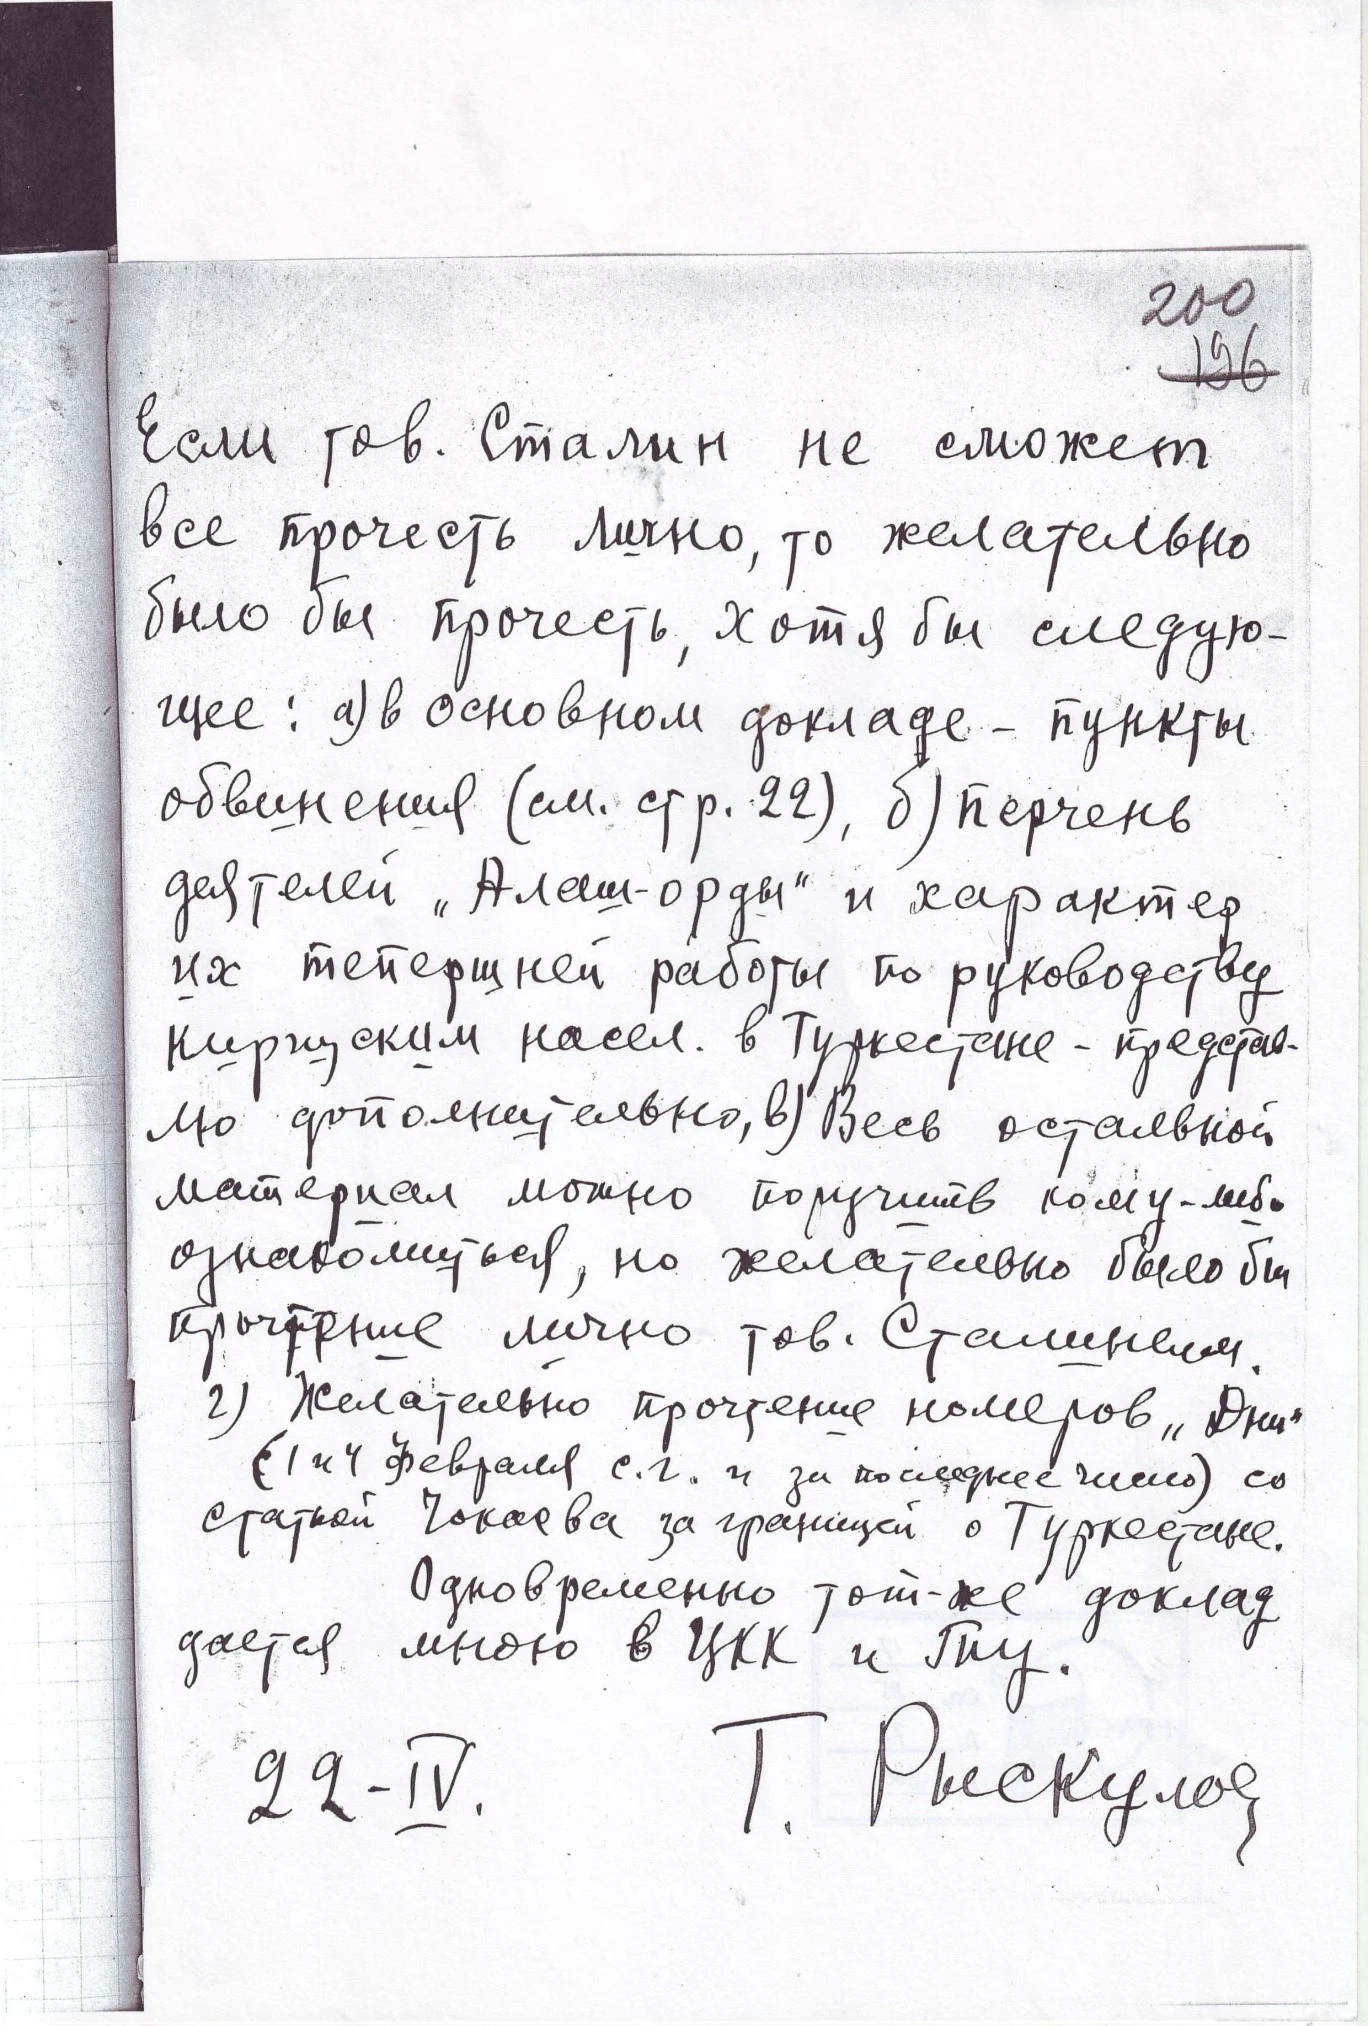 200
196
Если тов. Сталин не сможет
все прочесть лично, то желательно
было бы прочесть, хотя бы следую-
щее: а) в основном докладе - пункты
обвинения (см. стр. 22), б) перчень
деятелей „Алаш-орды" и характер
их тепершней работы по руководству
киргизским насел. в Туркестане - представ-
лю дополнительно, в) Весь остальной
материал можно поручить кому-либо
ознакомиться, но желательно было бы
прочтение лично тов. Сталиным.
г) Желательно прочтение номеров „Дни"
(1 и 4 февраля с.г. и за последнее число) со
статьей Чокаева за границей о Туркестане.
Одновременно тот-же доклад
дается мною в ЦКК и ГПУ.
22-IV. Т. Рыскулов